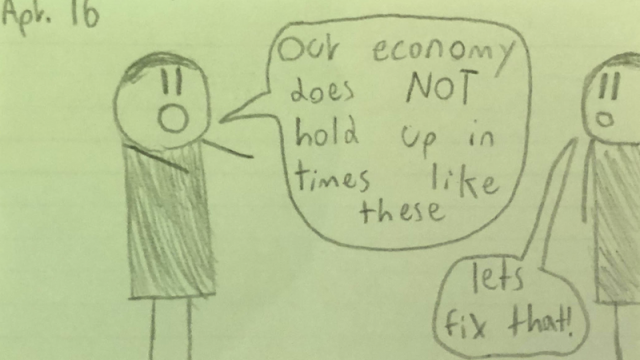 Apr. 16
Our economy
does NOT
hold up in
times like
these
lets
fix that!